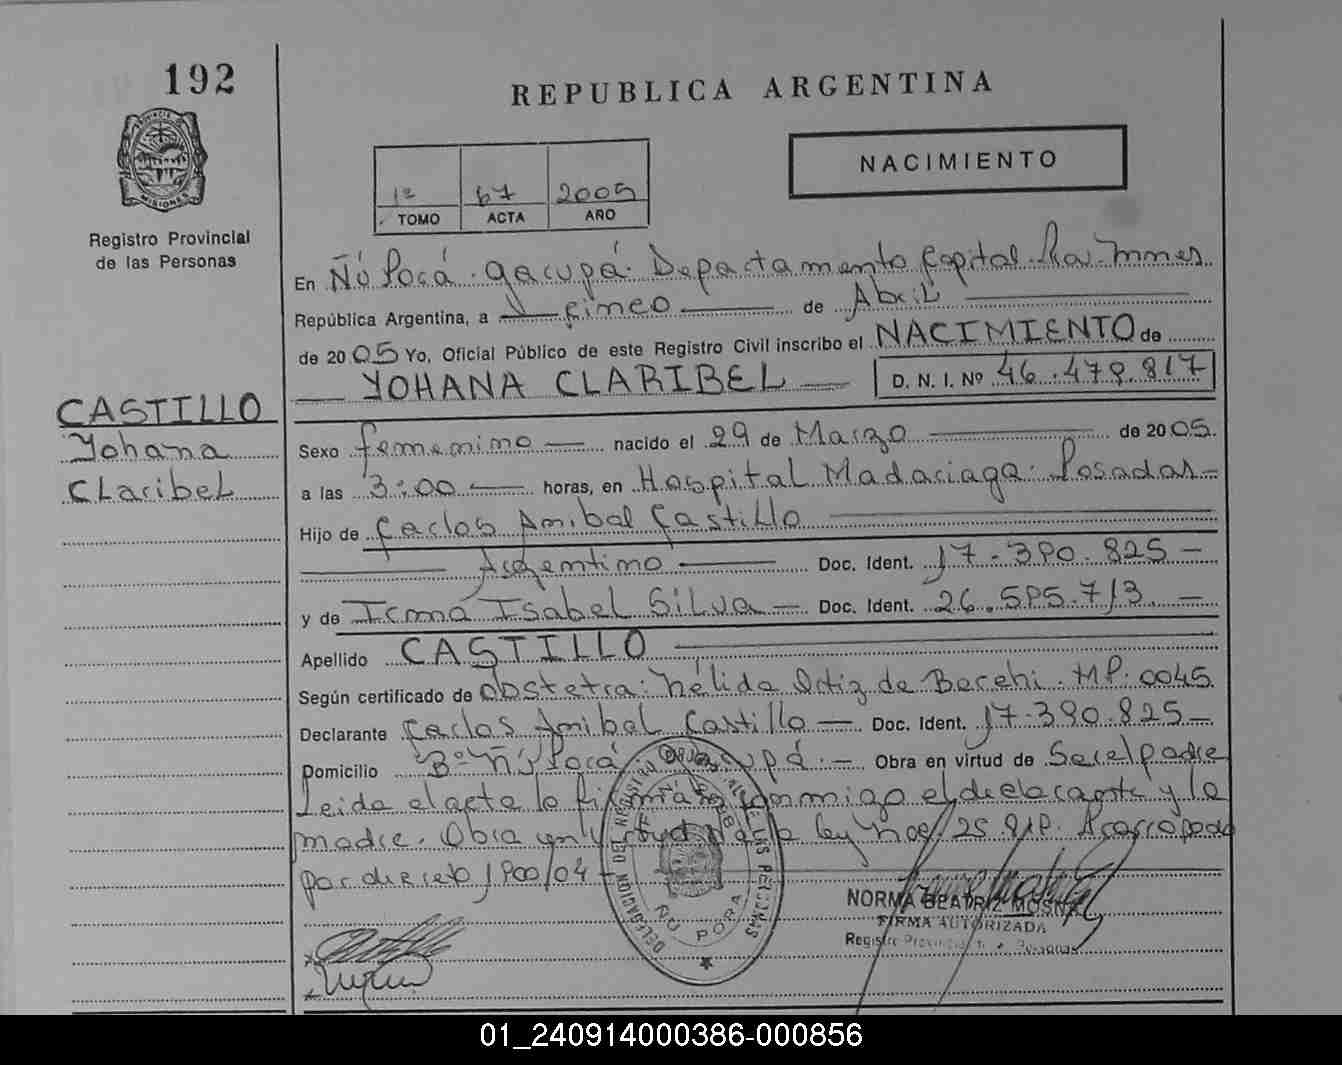 192
REPUBLICA ARGENTINA
NACIMIENTO
1º 67 2005
TOMO ACTA AÑO
PROVINCIA DE MISIONES
Registro Provincial
de las Personas
En Ñú Porá. Garupá. Departamento Capital. Pcia. Mnes
República Argentina, a cinco de Abril
de 2005 Yo, Oficial Público de este Registro Civil inscribo el NACIMIENTO de
YOHANA CLARIBEL D. N. I. Nº 46.479.817
CASTILLO
Yohana
Claribel
Sexo femenino nacido el 29 de Marzo de 2005.
a las 3:00 horas, en Hospital Madariaga. Posadas
Hijo de Carlos Anibal Castillo
Argentino Doc. Ident. 17.390.825
y de Irma Isabel Silva Doc. Ident. 26.595.713
Apellido CASTILLO
Según certificado de obstetra: Nélida Ortiz de MP. 0045
Declarante Carlos Anibal Castillo Doc. Ident. 17.390.825
Domicilio Bº Ñú Porá Garupá. Obra en virtud de Ser el padre
Leida el acta la firmarán conmigo el declarante y la
madre. Obra en virtud de la ley
por decreto 1900/04
DELEGACION DEL REGISTRO PROVINCIAL DE LAS PERSONAS
ÑU PORA
NORMA BEATRIZ MOSNA
FIRMA AUTORIZADA
Registro Provincial de las Personas
01_240914000386-000856